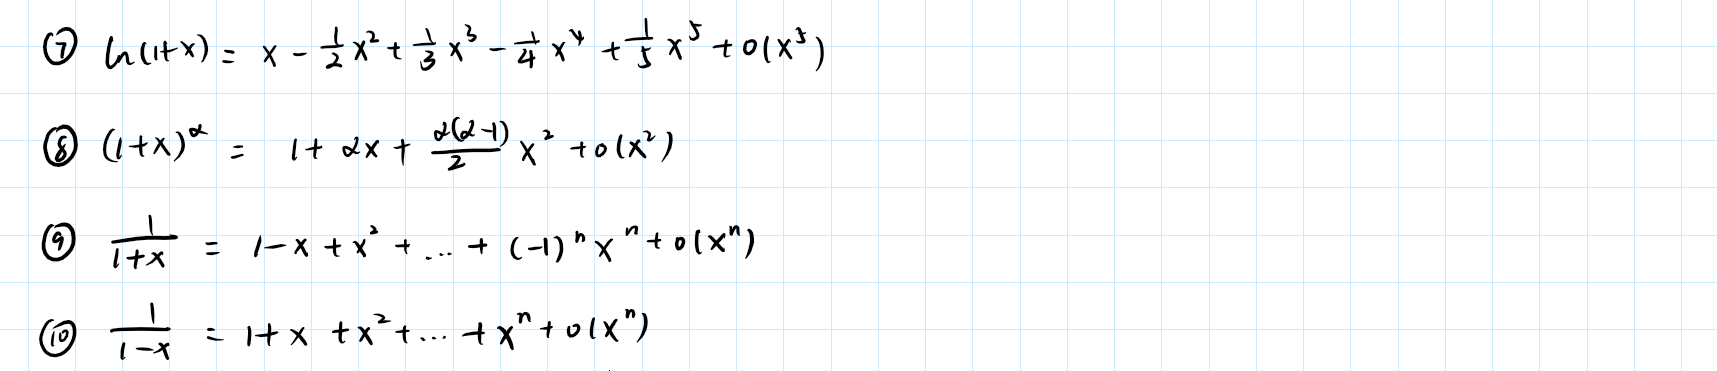 ⑦ ln(1+x) = x - 1/2 x² + 1/3 x³ - 1/4 x⁴ + 1/5 x⁵ + o(x⁵)
⑧ (1+x)^α = 1 + αx + α(α-1)/2 x² + o(x²)
⑨ 1/(1+x) = 1 - x + x² + ... + (-1)ⁿ xⁿ + o(xⁿ)
⑩ 1/(1-x) = 1 + x + x² + ... + xⁿ + o(xⁿ)